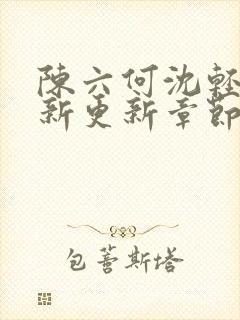 陳六何沈輕
新更新章節
包蒈斯塔